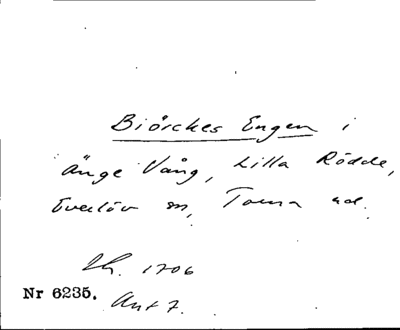 Biörckes Engen i
Änge Vång, Lilla Rödde,
Everlöv sn, Torna hd.
Lh. 1706
Nr 6235. Akt 7.